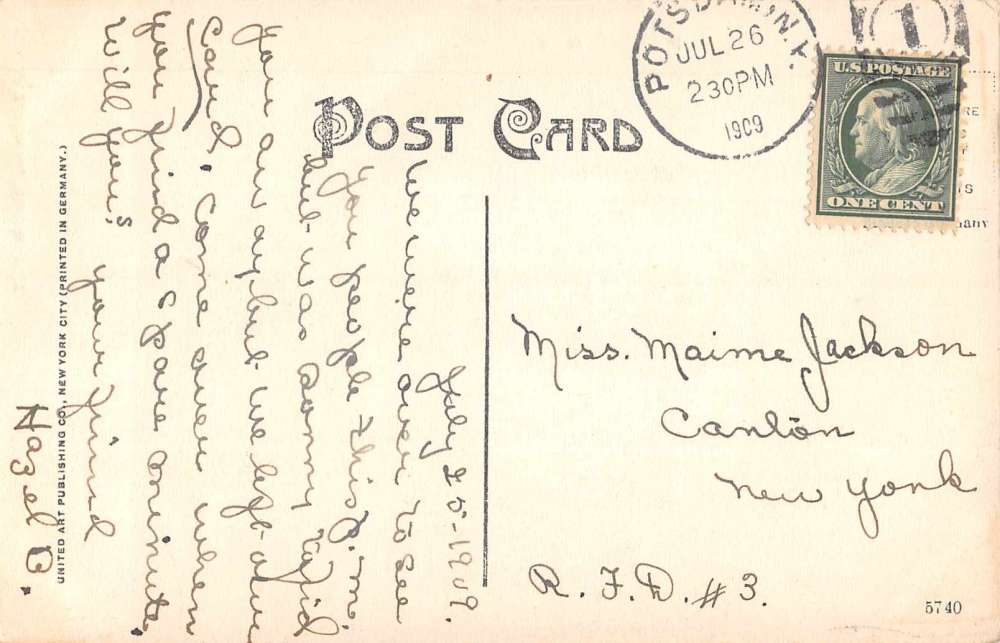 POST CARD
POTSDAM, N.Y.
JUL 26
2 30 PM
1909
1
U.S. POSTAGE
ONE CENT
July 25-1909.
We were over to see
you people this P.m.
but was sorry to find
you away but we left our
card. Come over when
you find a spare minute
will you?
your friend
Hazel B.
Miss. Maime Jackson
Canton
New York
R.F.D. #3.
UNITED ART PUBLISHING CO., NEW YORK CITY (PRINTED IN GERMANY.)
5740